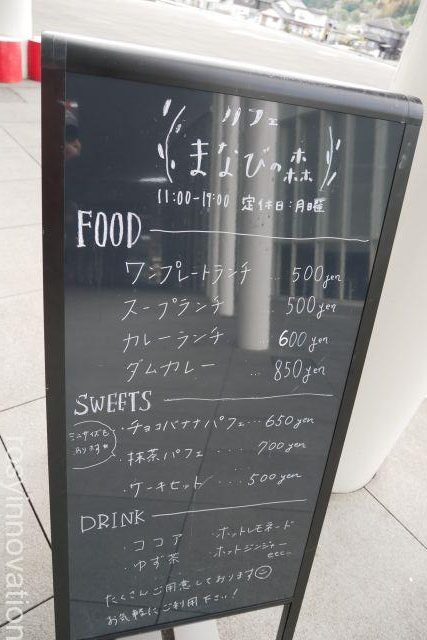 カフェ
まなびの森
11:00-19:00 定休日:月曜
FOOD
ワンプレートランチ … 500yen
スープランチ … 500yen
カレーランチ 600yen
ダムカレー … 850yen
SWEETS
・チョコバナナパフェ… 650yen
ミニサイズも
あります
・抹茶パフェ ・・・・ 700yen
・ケーキセット ・・・ 500yen
DRINK
・ココア ・ホットレモネード
・ゆず茶 ・ホットジンジャー
etc…
たくさんご用意しております
お気軽にご利用下さい!
oyinnovation